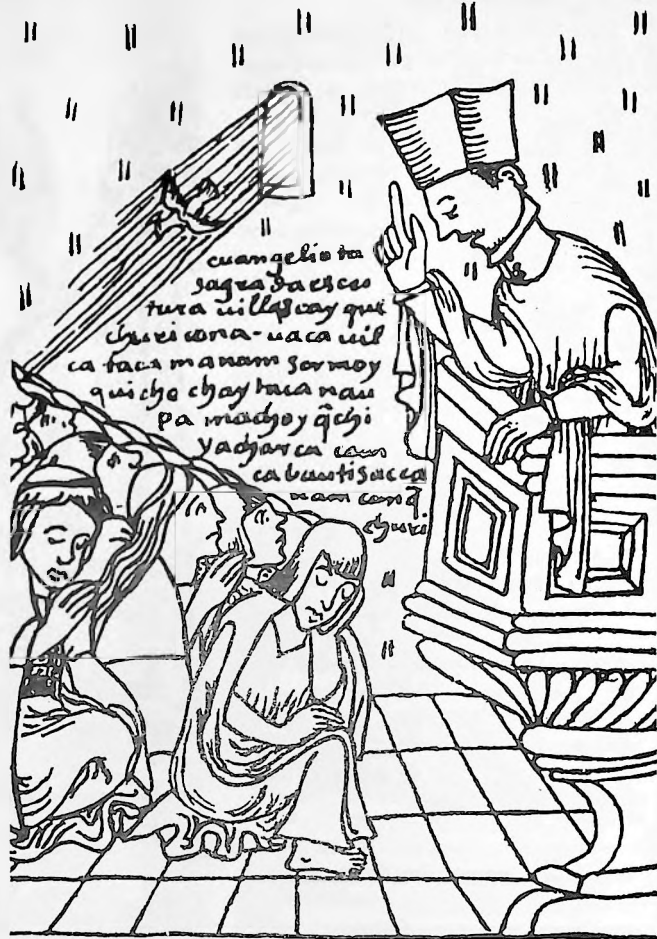 cuangelio ta
sagra da escri
tura uillascay qui
churicona - uaca uil
ca taca manam sermoy
quicho chay taca nau
pa machoy q̃chi
yacharca cam
ca bautisacca
nam can q̃
churi